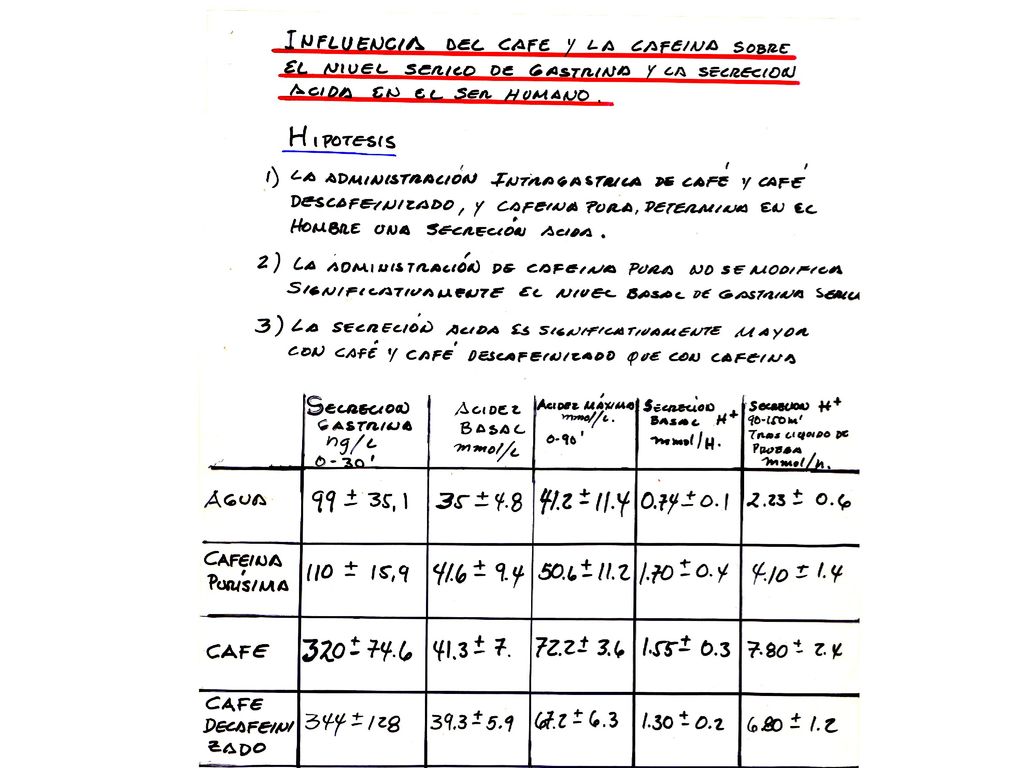 INFLUENCIA DEL CAFE Y LA CAFEINA SOBRE
EL NIVEL SERICO DE GASTRINA Y LA SECRECION
ACIDA EN EL SER HUMANO.
HIPOTESIS
1) LA ADMINISTRACIÓN INTRAGASTRICA DE CAFÉ Y CAFÉ
DESCAFEINIZADO, Y CAFEINA PURA, DETERMINA EN EL
HOMBRE UNA SECRECIÓN ACIDA.
2) LA ADMINISTRACIÓN DE CAFEINA PURA NO SE MODIFICA
SIGNIFICATIVAMENTE EL NIVEL BASAL DE GASTRINA
3) LA SECRECIÓN ACIDA ES SIGNIFICATIVAMENTE MAYOR
CON CAFÉ Y CAFÉ DESCAFEINIZADO QUE CON CAFEINA
SECRECION GASTRINA ng/L 0-30' ACIDEZ BASAL mmol/L ACIDEZ MÁXIMA mmol/L. 0-90' SECRECIÓN BASAL H+ mmol/H. SECRECION H+ 90-150m' TRAS LIQUIDO DE PRUEBA mmol/h.
AGUA 99 ± 35,1 35 ± 4.8 41.2 ± 11.4 0.74 ± 0.1 2.23 ± 0.6
CAFEINA PURÍSIMA 110 ± 15,9 41.6 ± 9.4 50.6 ± 11.2 1.70 ± 0.4 4.10 ± 1.4
CAFE 320 ± 74.6 41.3 ± 7. 72.2 ± 3.6 1.55 ± 0.3 7.80 ± 2.4
CAFE DECAFEINIZADO 344 ± 128 39.3 ± 5.9 67.2 ± 6.3 1.30 ± 0.2 6.80 ± 1.2